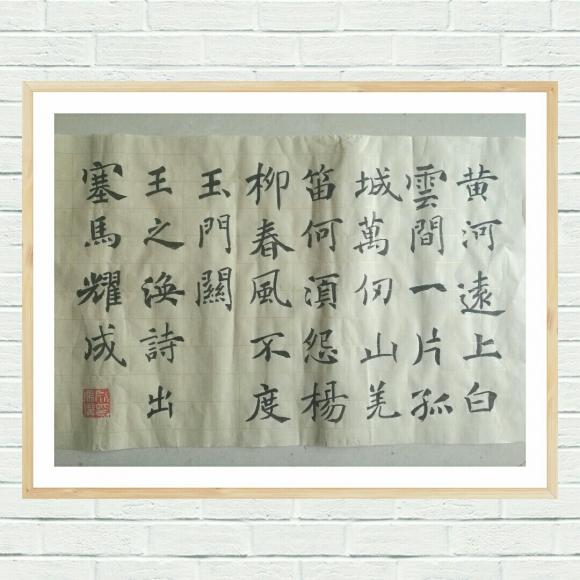 黄河遠上白
雲間一片孤
城萬仞山羌
笛何須怨楊
柳春風不度
玉門關
王之渙詩出
塞馬耀成